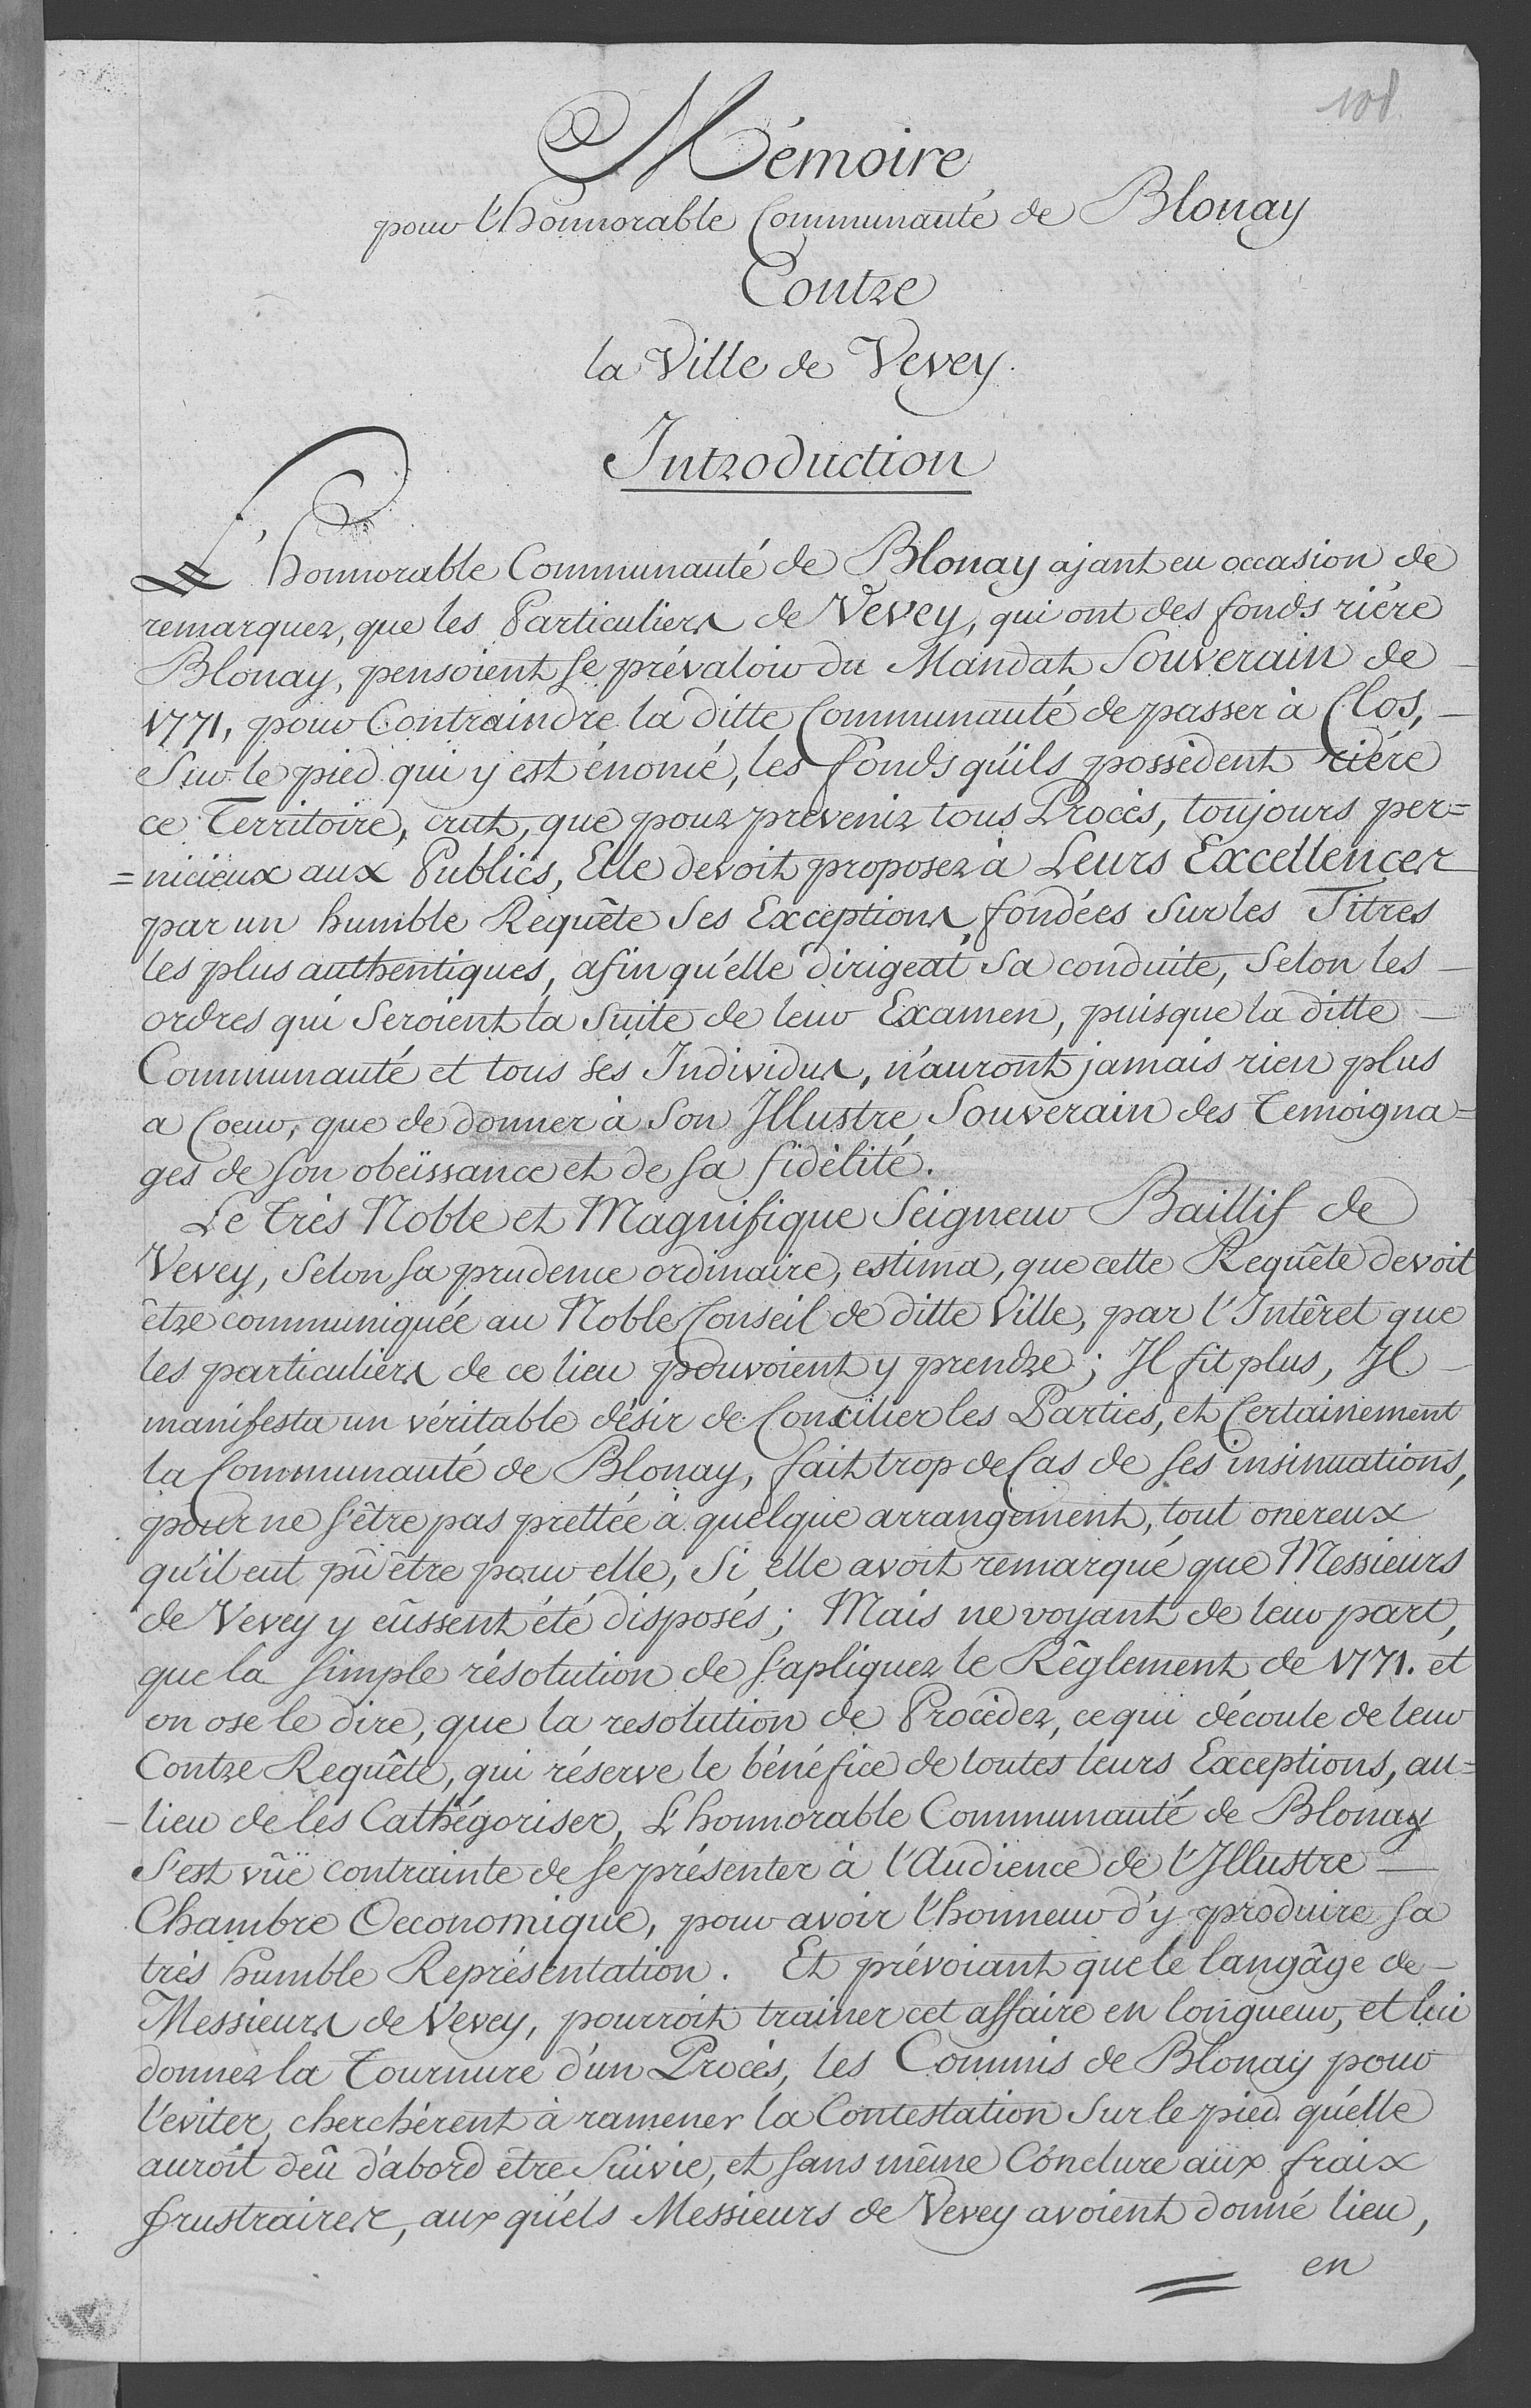 108
Mémoire
pour l'honnorable Communauté de Blonay
Contre
la Ville de Vevey.
Introduction
L'honnorable Communauté de Blonay ajant eu occasion de
remarquer, que les Particuliers de Vevey, qui ont des fonds riére
Blonay, pensoient se prévaloir du Mandat Souverain de
1771, pour Contraindre la ditte Communauté de passer à Clos,
Sur le pied qui y est énoncé, les fonds qu'ils possédent riére
ce Territoire, crut, que pour prevenir tous Procès, toujours per=
=nicieux aux Publics, Elle devoit proposer à Leurs Excellences
par un humble Requête Ses Exceptions, fondées Sur les Titres
les plus authentiques, afin qu'elle dirigeat Sa conduite, Selon les
ordres qui Seroient la Suite de leur Examen, puisque la ditte
Communauté et tous ses Individus, n'auront jamais rien plus
a Coeur, que de donner à Son Illustre Souverain des Temoigna=
ges de Son obeïssance et de sa fidélité.
Le très Noble et Magnifique Seigneur Baillif de
Vevey, Selon sa prudence ordinaire, estima, que cette Requête devoit
être communiquée au Noble Conseil de ditte Ville, par l'Intêret que
les particuliers de ce lieu pouvoient y prendre; Il fit plus, Il
manifesta un véritable désir de Concilier les Parties, et Certainement
la Communauté de Blonay, fait trop de Cas de ses insinuations,
pour ne s'être pas prettée à quelque arrangement, tout onereux
qu'il eut pû être pour elle, Si elle avoit remarqué que Messieurs
de Vevey y eûssent été disposés; Mais ne voyant de leur part,
que la simple résolution de s'apliquer le Rêglement de 1771. et
on ose le dire, que la resolution de Procéder, ce qui découle de leur
Contre Requête, qui réserve le bénéfice de toutes leurs Exceptions, au=
lieu de les Cathégoriser, L'honnorable Communauté de Blonay
S'est vûë contrainte de se présenter à l'Audience de l'Illustre
Chambre Oeconomique, pour avoir l'honneur d'y produire sa
très humble Représentation. Et prévoiant que le langâge de
Messieurs de Vevey, pourroit trainer cet affaire en longueur, et lui
donner la Tournure d'un Procès, les Commis de Blonay pour
l'eviter, cherchérent à ramener la Contestation Sur le pied qu'elle
auroit deû d'abord être Suivie, et sans même Conclure aux fraix
frustraires, aux quels Messieurs de Vevey avoient donné lieu,
en